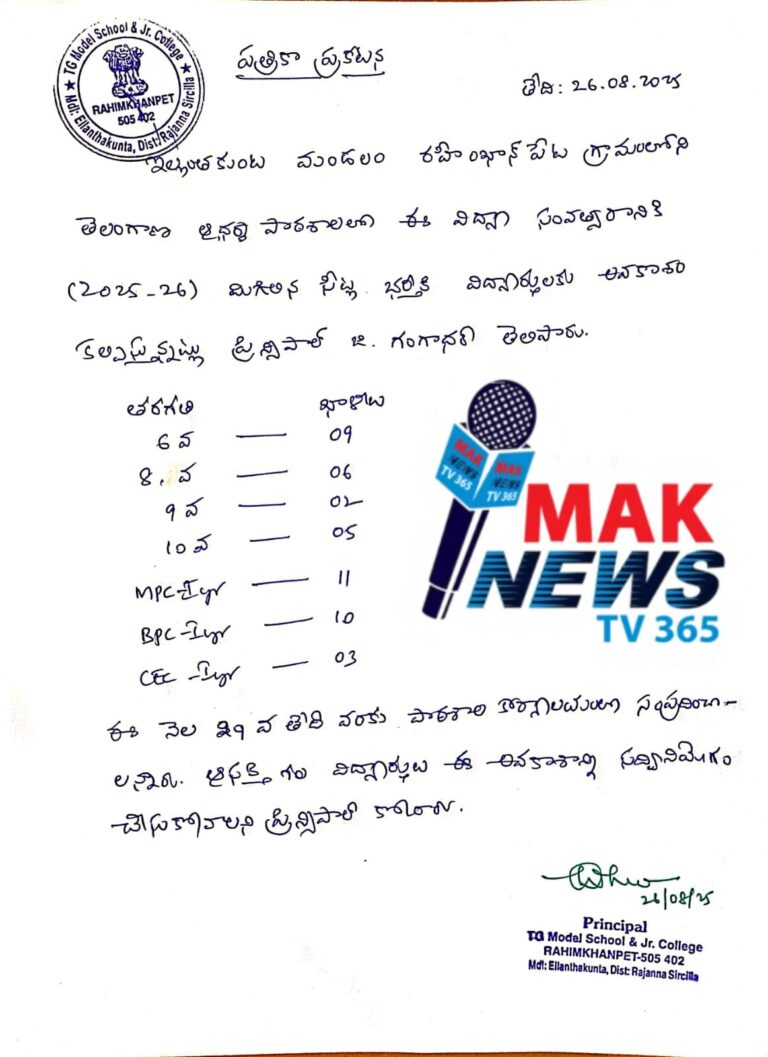 TG Model School & Jr. College
RAHIMKHANPET
505 402
Mdl: Ellanthakunta, Dist: Rajanna Sircilla
పత్రికా ప్రకటన
తేది: 26.08.2025
ఇల్లంతకుంట మండలం రహీంఖాన్ పేట గ్రామంలోని
తెలంగాణ ఆదర్శ పాఠశాలలో ఈ విద్యా సంవత్సరానికి
(2025-26) మిగిలిన సీట్ల భర్తీకి విద్యార్థులకు అవకాశం
కల్పిస్తున్నట్లు ప్రిన్సిపాల్ జి. గంగాధర్ తెలిపారు.
తరగతి ఖాళీలు
6 వ — 09
8. వ — 06
9 వ — 02
10 వ — 05
MPC-I Yr — 11
BPC-I Yr — 10
CEC-I Yr — 03
MAK
NEWS
TV 365
MAK
NEWS
TV 365
MAK
NEWS
TV 365
ఈ నెల 29 వ తేది వరకు పాఠశాల కార్యాలయంలో సంప్రదించా-
లన్నారు. ఆసక్తి గల విద్యార్థులు ఈ అవకాశాన్ని సద్వినియోగం
చేసుకోవాలని ప్రిన్సిపాల్ కోరారు.
26/08/25
Principal
TG Model School & Jr. College
RAHIMKHANPET-505 402
Mdl: Ellanthakunta, Dist: Rajanna Sircilla